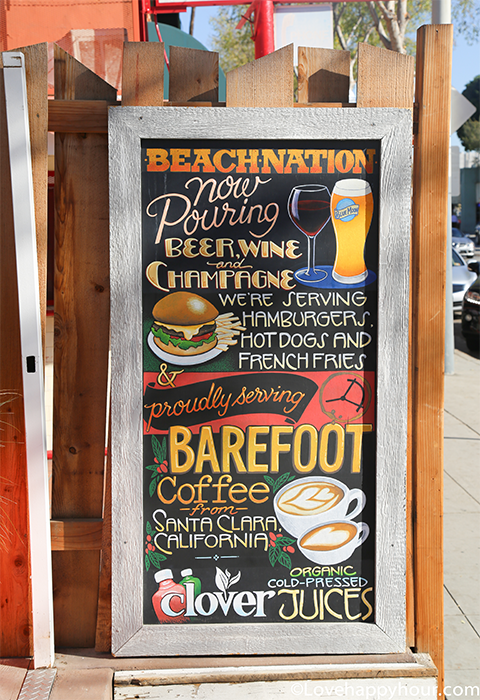 BEACH NATION
now
Pouring
BLUE MOON
BEER, WINE
and
CHAMPAGNE
WE'RE SERVING
HAMBURGERS,
HOT DOGS AND
FRENCH FRIES
&
proudly serving
BAREFOOT
Coffee
from
SANTA CLARA,
CALIFORNIA
clover
ORGANIC
COLD-PRESSED
JUICES
©Lovehappyhour.com